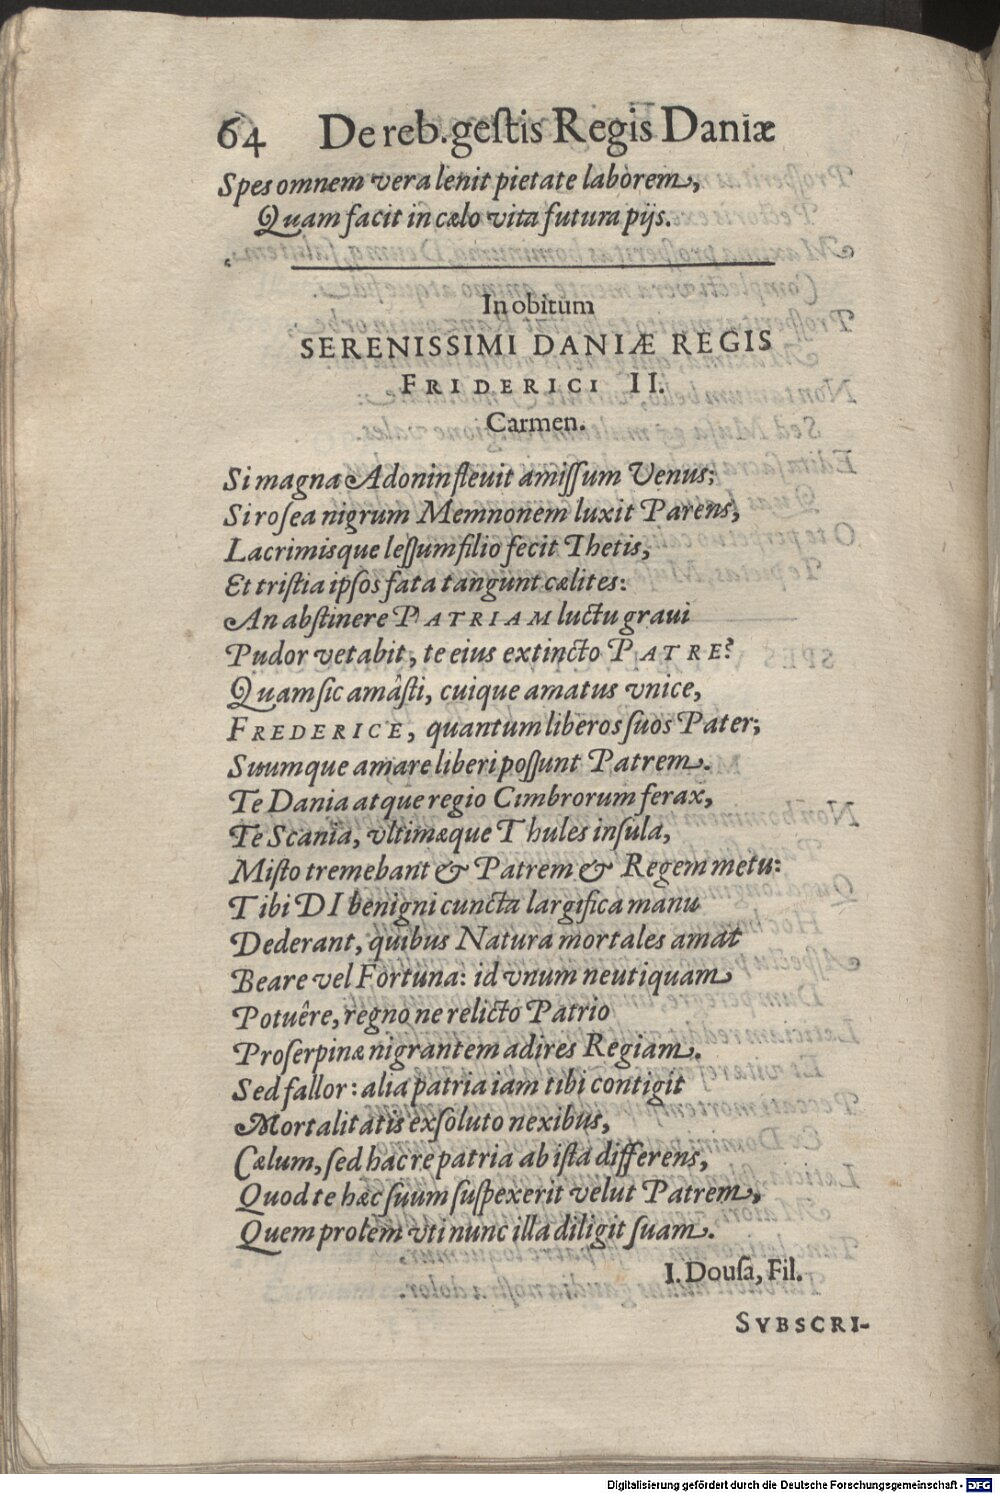 64 De reb. gestis Regis Daniæ
Spes omnem vera lenit pietate laborem,
Quam facit in cælo vita futura pijs.
In obitum
SERENISSIMI DANIÆ REGIS
FRIDERICI II.
Carmen.
Si magna Adonin fleuit amissum Venus;
Si rosea nigrum Memnonem luxit Parens,
Lacrimisque lessum filio fecit Thetis,
Et tristia ipsos fata tangunt cælites:
An abstinere PATRIAM luctu graui
Pudor vetabit, te eius extincto PATRE?
Quam sic amâsti, cuique amatus vnice,
FREDERICE, quantum liberos suos Pater;
Suumque amare liberi possunt Patrem.
Te Dania atque regio Cimbrorum ferax,
Te Scania, vltimæque Thules insula,
Misto tremebant & Patrem & Regem metu:
Tibi DI benigni cuncta largifica manu
Dederant, quibus Natura mortales amat
Beare vel Fortuna: id vnum neutiquam
Potuêre, regno ne relicto Patrio
Proserpinæ nigrantem adires Regiam.
Sed fallor: alia patria iam tibi contigit
Mortalitatis exsoluto nexibus,
Cælum, sed hac re patria ab ista differens,
Quod te hæc suum suspexerit velut Patrem,
Quem prolem vti nunc illa diligit suam.
I. Dousa, Fil.
SVBSCRI-
Digitalisierung gefördert durch die Deutsche Forschungsgemeinschaft - DFG